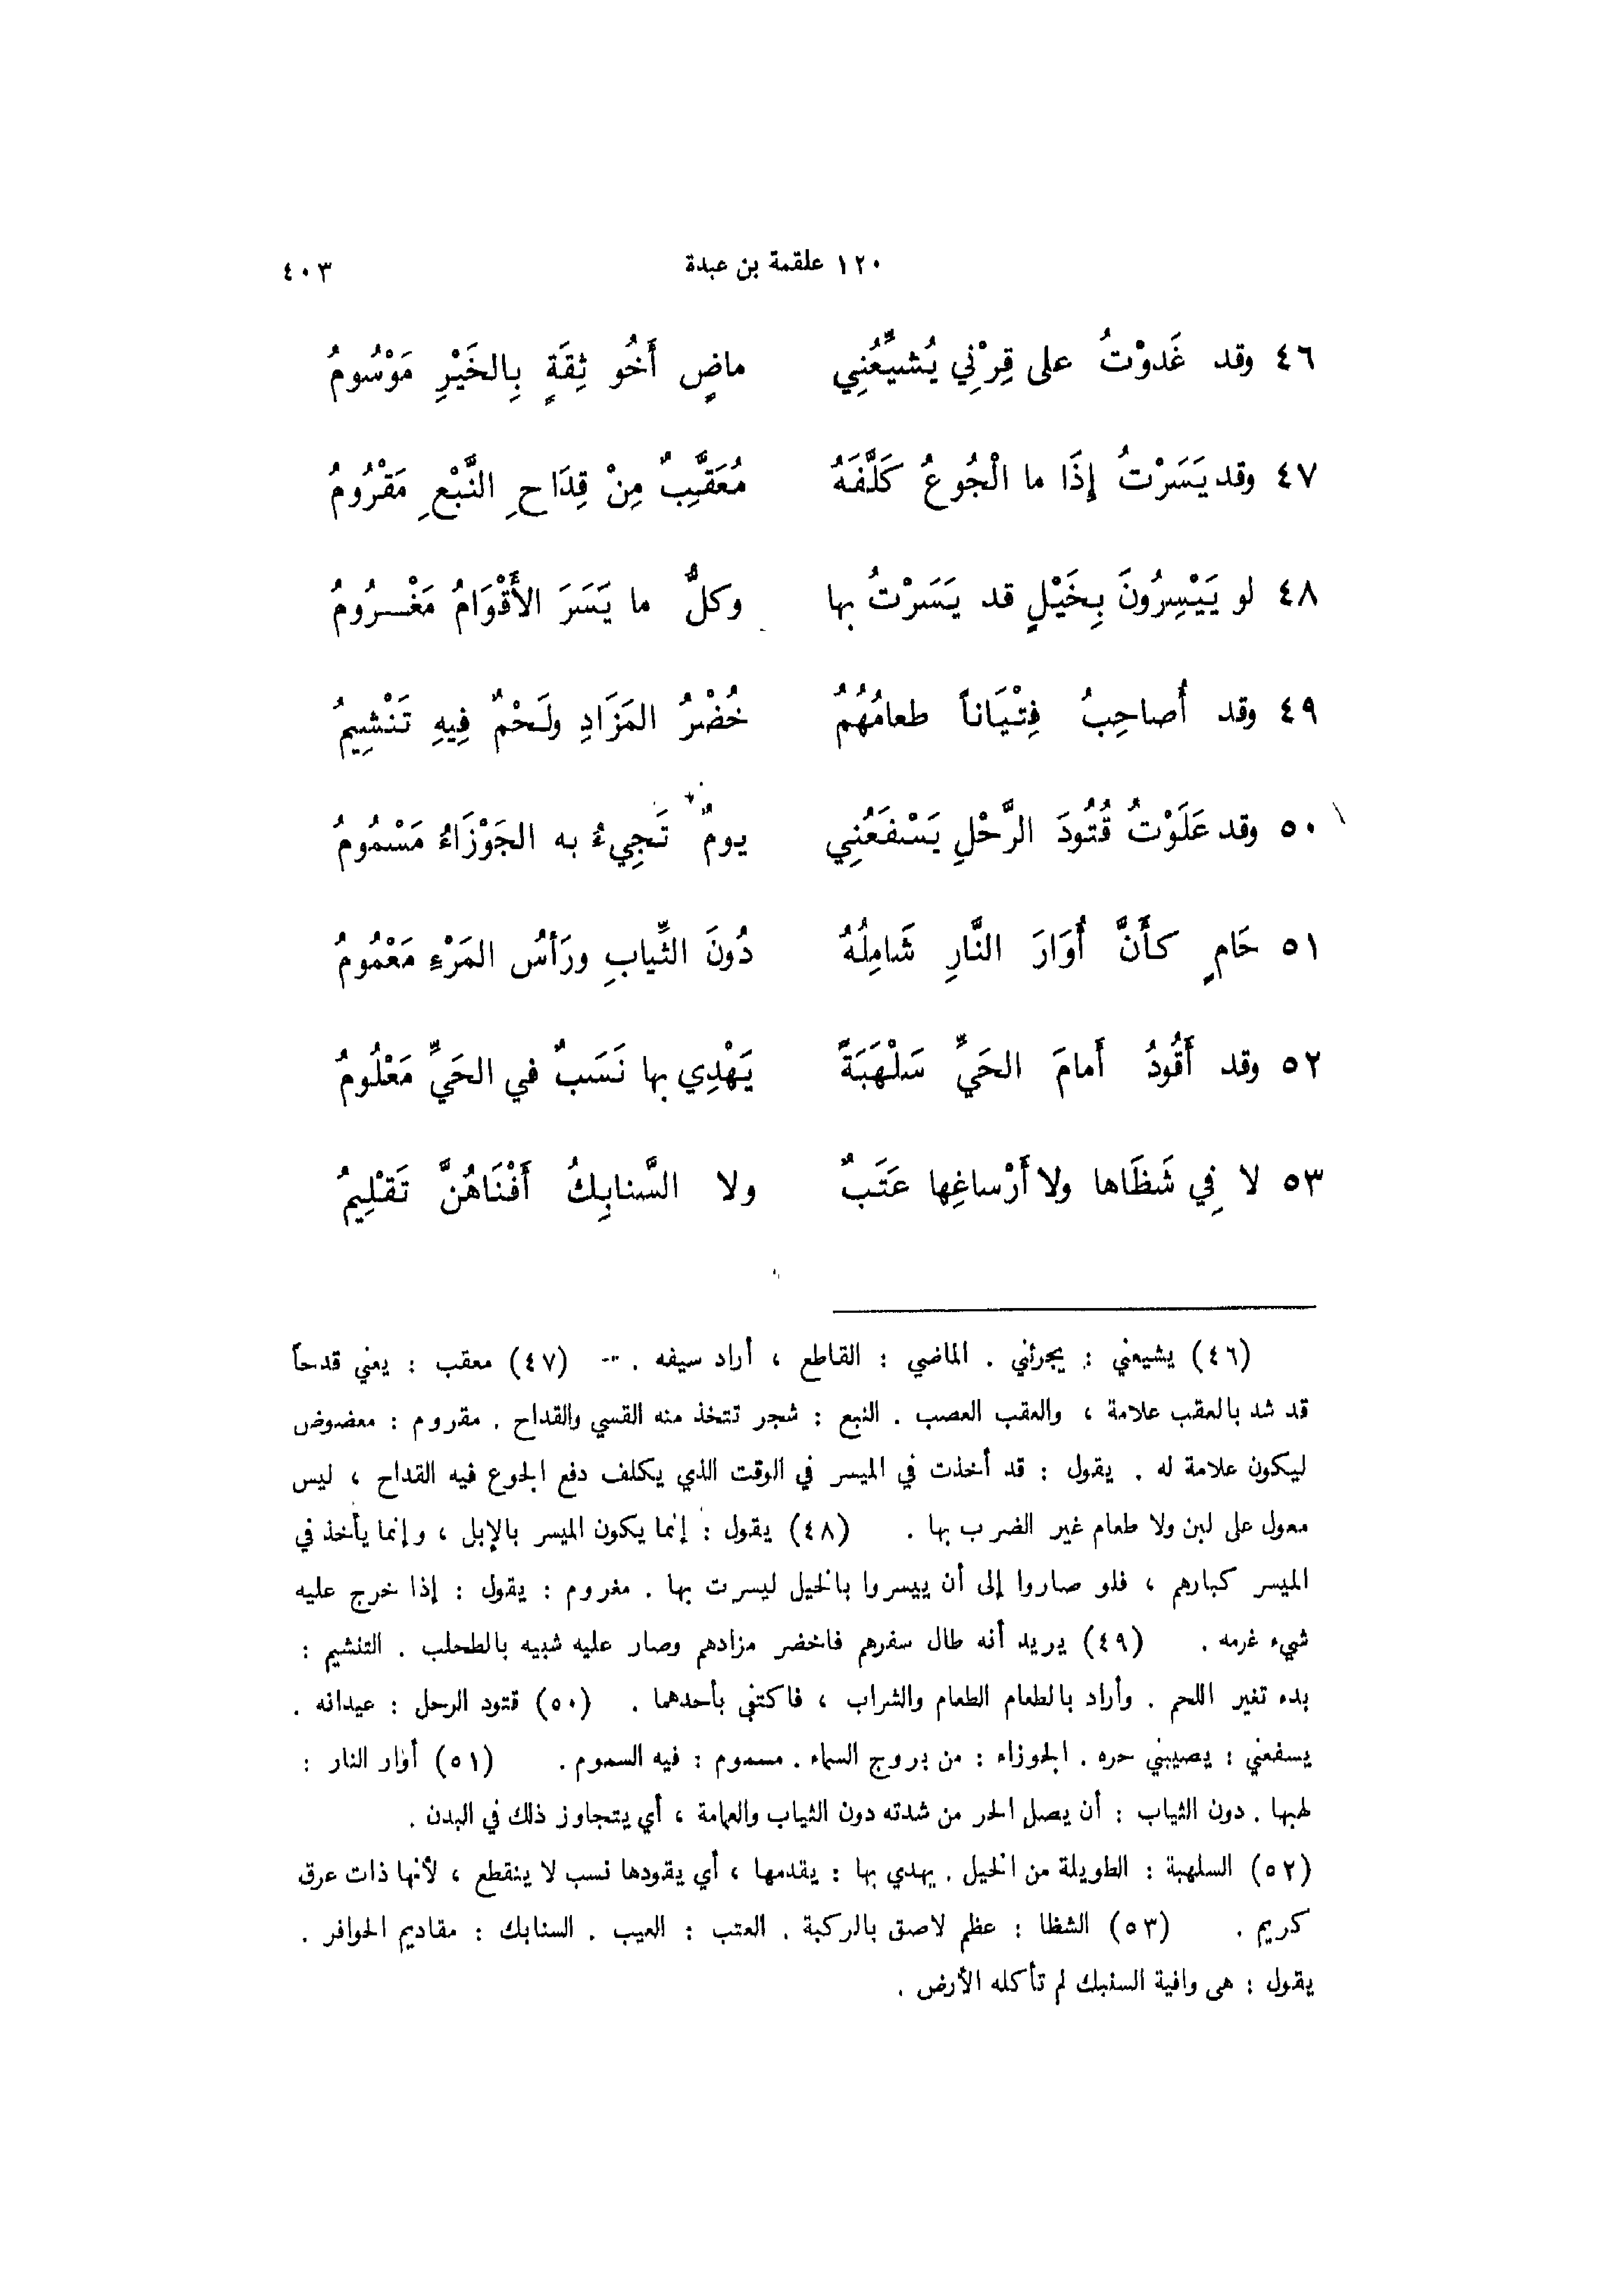 ١٢٠ علقمة بن عبدة ٤٠٣
٤٦ وقد غَدوْتُ على قِرْنِي يُشيِّعُنِي ماضٍ أَخُو ثِقَةٍ بِالخَيْرِ مَوْسُومُ
٤٧ وقد يَسَرْتُ إِذَا ما الْجُوعُ كَلَّفَهُ مُعَقَّبٌ مِنْ قِدَاحِ النَّبْعِ مَقْرُومُ
٤٨ لو يَيْسِرُونَ بِخَيْلٍ قد يَسَرْتُ بها وكلُّ ما يَسَرَ الأَقْوَامُ مَغْرُومُ
٤٩ وقد أُصاحِبُ فِتْيَاناً طعامُهُمُ خُضْرُ المَزَادِ ولَحْمٌ فِيهِ تَنْشِيمُ
٥٠ وقد عَلَوْتُ قُتُودَ الرَّحْلِ يَسْفَعُنِي يومٌ تَجِيءُ به الجَوْزَاءُ مَسْمُومُ
٥١ حَامٍ كأَنَّ أُوَارَ النَّارِ شَامِلُهُ دُونَ الثِّيابِ ورَأسُ المَرْءِ مَعْمُومُ
٥٢ وقد أَقُودُ أَمامَ الحَيِّ سَلْهَبَةً يَهْدِي بها نَسَبٌ في الحَيِّ مَعْلُومُ
٥٣ لا فِي شَظَاها ولا أَرْساغِها عَتَبٌ ولا السَّنابِكُ أَفْنَاهُنَّ تَقْلِيمُ
(٤٦) يشيعني : يجرئني . الماضي : القاطع ، أراد سيفه . (٤٧) معقب : يعني قدحاً
قد شد بالعقب علامة ، والعقب العصب . النبع : شجر تتخذ منه القسي والقداح . مقروم : معضوض
ليكون علامة له . يقول : قد أخذت في الميسر في الوقت الذي يكلف دفع الجوع فيه القداح ، ليس
معول على لبن ولا طعام غير الضرب بها . (٤٨) يقول : إنما يكون الميسر بالإبل ، وإنما يأخذ في
الميسر كبارهم ، فلو صاروا إلى أن ييسروا بالخيل ليسرت بها . مغروم : يقول : إذا خرج عليه
شيء غرمه . (٤٩) يريد أنه طال سفرهم فاخضر مزادهم وصار عليه شبيه بالطحلب . التنشيم :
بدء تغير اللحم . وأراد بالطعام الطعام والشراب ، فاكتفى بأحدهما . (٥٠) قتود الرحل : عيدانه .
يسفعني : يصيبني حره . الجوزاء : من بروج السماء . مسموم : فيه السموم . (٥١) أوار النار :
لهبها . دون الثياب : أن يصل الحر من شدته دون الثياب والعمامة ، أي يتجاوز ذلك في البدن .
(٥٢) السلهبة : الطويلة من الخيل . يهدي بها : يقدمها ، أي يقودها نسب لا ينقطع ، لأنها ذات عرق
كريم . (٥٣) الشظا : عظم لاصق بالركبة . العتب : العيب . السنابك : مقاديم الحوافر .
يقول : هى وافية السنبك لم تأكله الأرض .